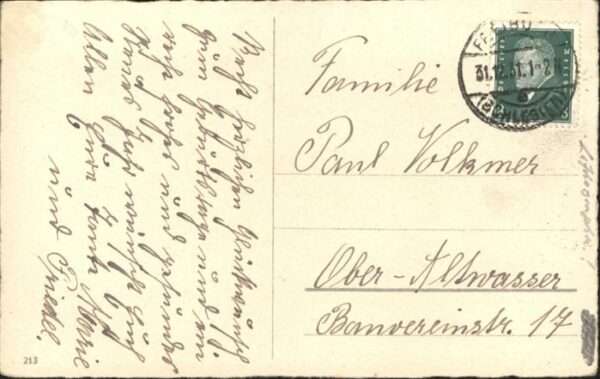 Recht herzlichen Glückwunsch
zum Geburtstage und ein
recht frohes und gesundes
Neues Jahr wünscht Euch
Allen Eure Tante Marie
und Friedel.
FREIBURG
31.12.31. 1-2
(SCHLESIEN)
Familie
Paul Volkmer
Ober-Altwasser
Bauvereinstr. 17
213